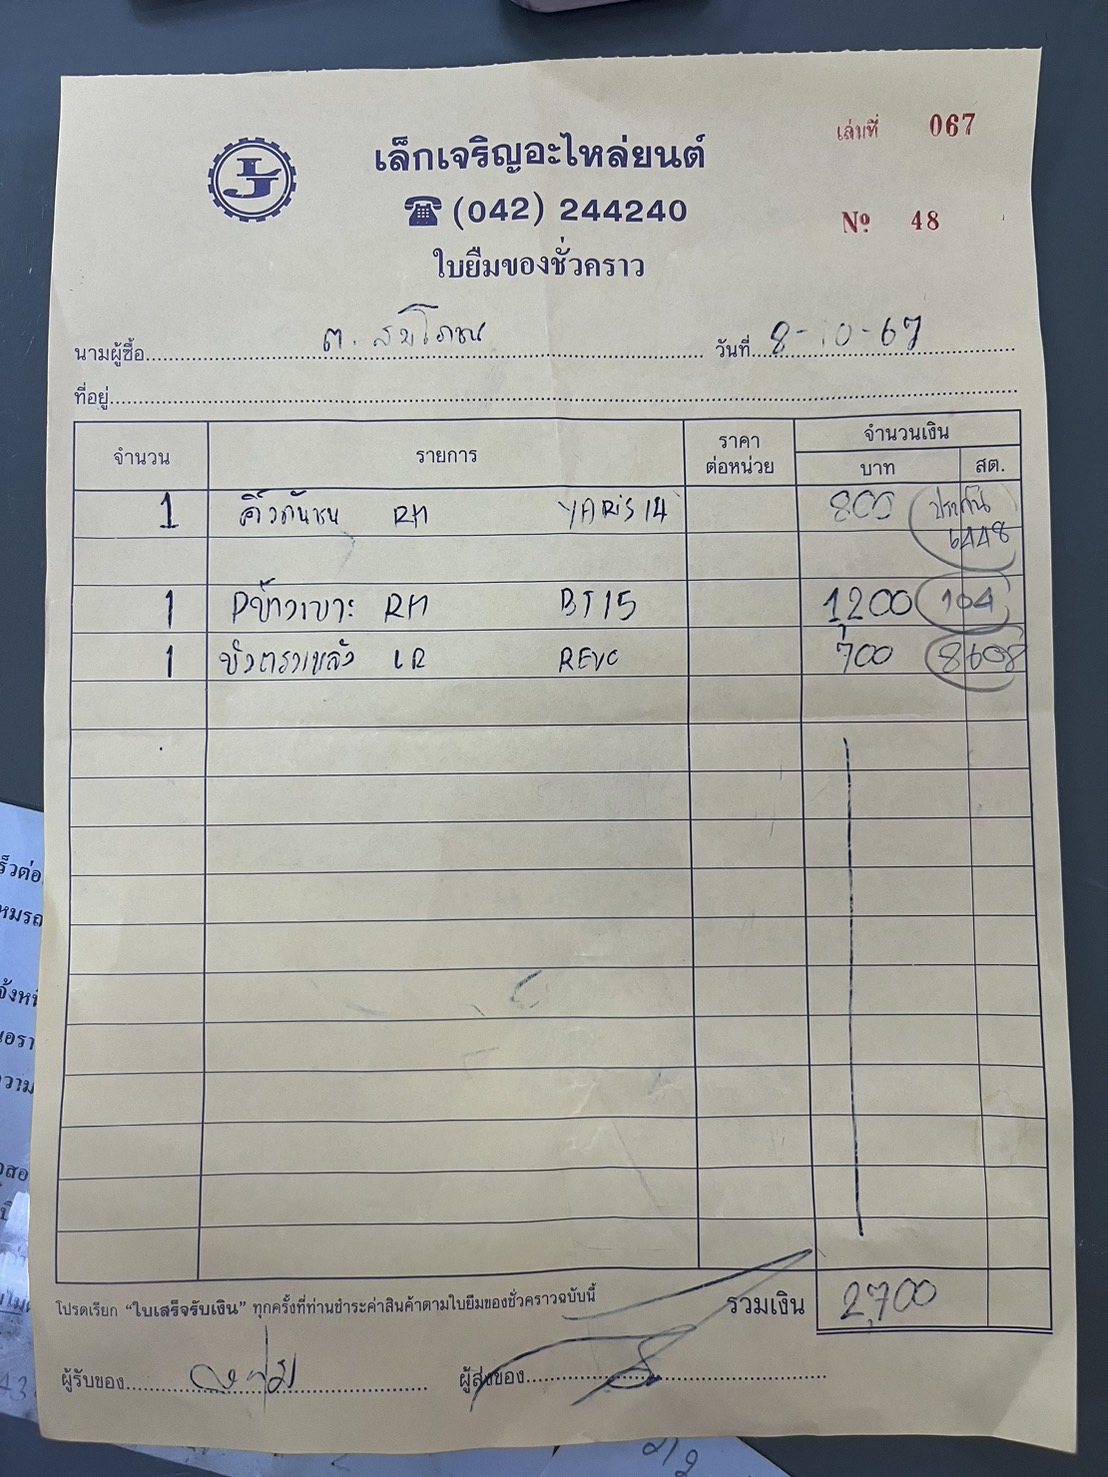 เล่มที่ 067
เล็กเจริญอะไหล่ยนต์
(042) 244240
Nº 48
ใบยืมของชั่วคราว
นามผู้ซื้อ ต. สมโภชน วันที่ 8-10-67
ที่อยู่
จำนวน รายการ ราคาต่อหน่วย จำนวนเงิน
บาท สต.
1 คิ้วกันชน RH YARIS 14 800 ประกัน
6448
1 RH BT15 1,200 104
1 LR REVO 700 8608
โปรดเรียก "ใบเสร็จรับเงิน" ทุกครั้งที่ท่านชำระค่าสินค้าตามใบยืมของชั่วคราวฉบับนี้ รวมเงิน 2,700
ผู้รับของ ผู้ส่งของ